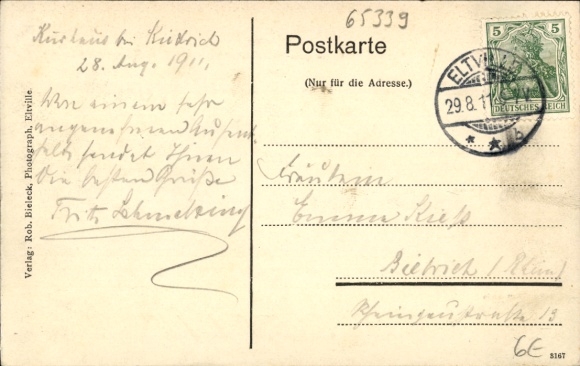 65339
Postkarte
(Nur für die Adresse.)
5 5
DEUTSCHES REICH
ELTVILLE
29.8.11
b
Kurhaus bei Kiedrich
28. Aug. 1911.
Von einem sehr
angenehmen Aufent
halt sendet Ihnen
die besten Grüße
Fritz
Fräulein
Emma
Biebrich / Rhein /
Rheingaustraße 13
Verlag: Rob. Bieleck, Photograph, Eltville.
6E
5167